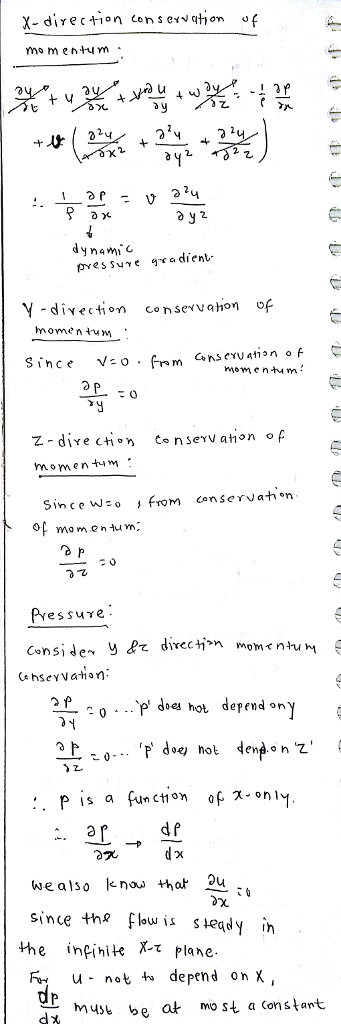 X-direction conservation of
momentum:
∂u/∂t + u ∂u/∂x + v ∂u/∂y + w ∂u/∂z = -1/ρ ∂p/∂x
+ υ (∂²u/∂x² + ∂²u/∂y² + ∂²u/∂z²)
∴ 1/ρ ∂p/∂x = υ ∂²u/∂y²
↓
dynamic
pressure gradient.
Y-direction conservation of
momentum:
Since v=0. from conservation of
momentum:
∂p/∂y = 0
Z-direction conservation of
momentum:
Since w=0, from conservation
of momentum:
∂p/∂z = 0
Pressure:
Consider y & z direction momentum
conservation:
∂p/∂y = 0 ... 'p' does not depend on y
∂p/∂z = 0... 'p' does not depd.on 'z'
∴ p is a function of x-only.
∴ ∂p/∂x → dp/dx
we also know that ∂u/∂x = 0
since the flow is steady in
the infinite x-z plane.
For u- not to depend on x,
dp/dx must be at most a constant